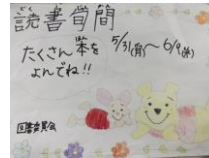 読書旬間
たくさん本を
よんでね!!
5/31(月)～6/9(水)
図書委員会